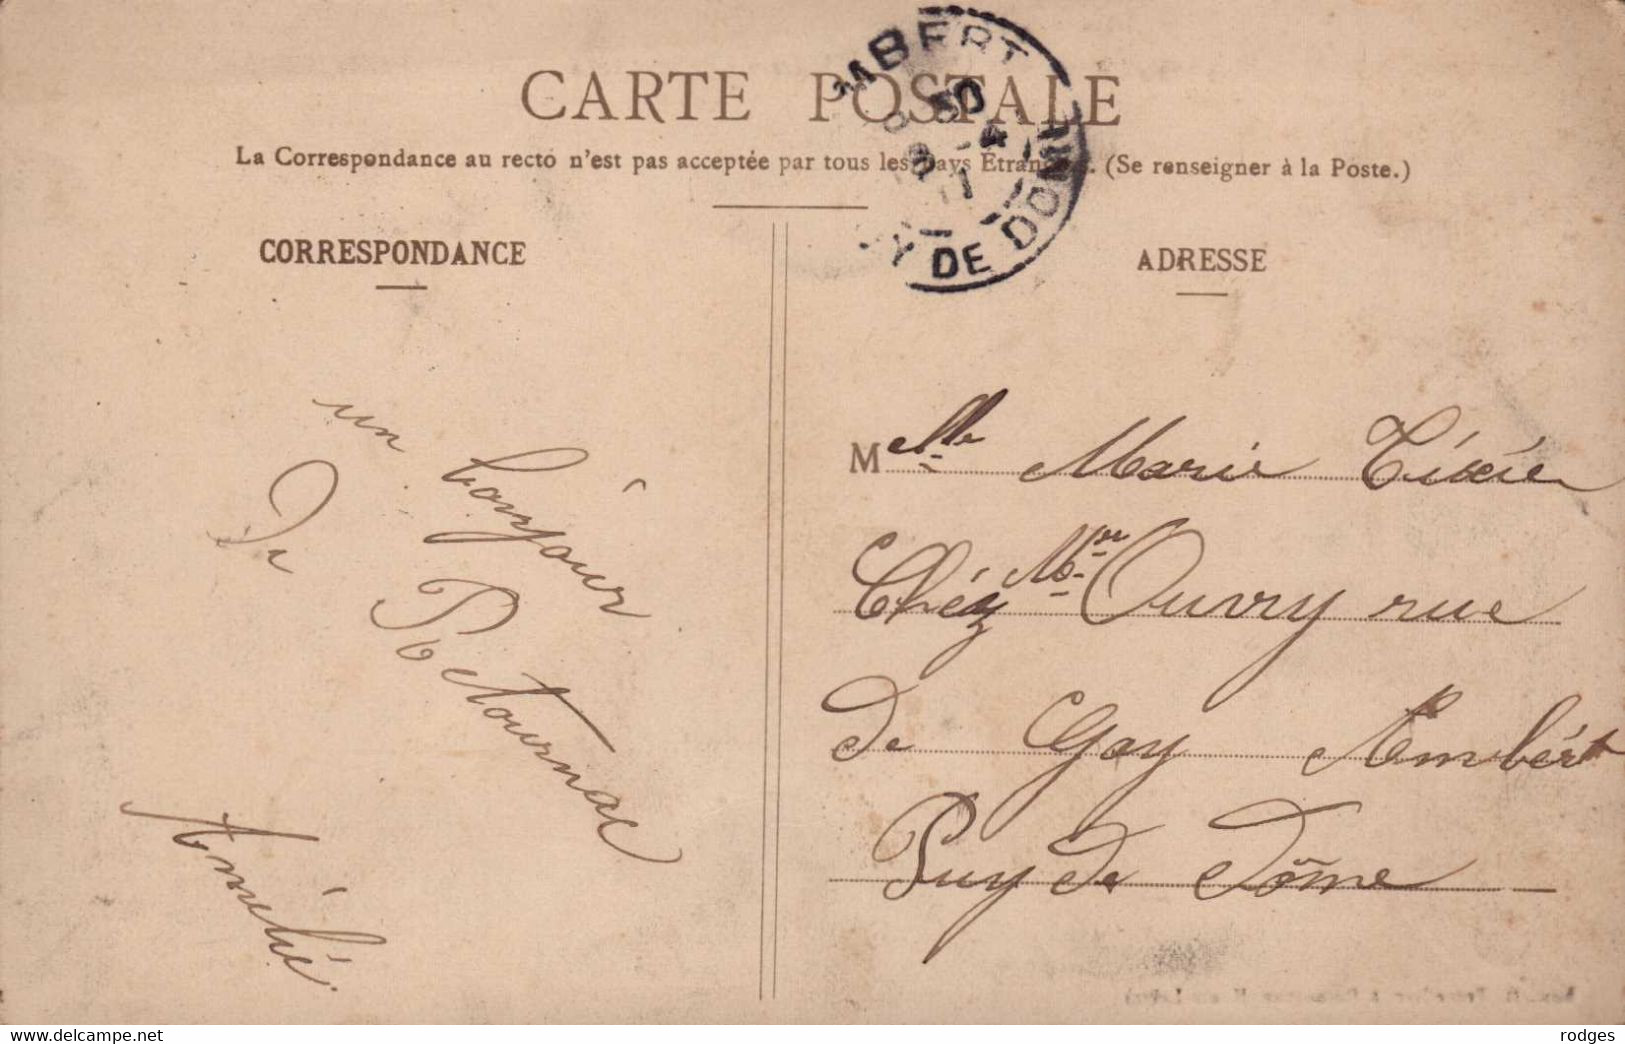 CARTE POSTALE
La Correspondance au recto n'est pas acceptée par tous les pays Étrangers. (Se renseigner à la Poste.)
MBERT
30
8 - 4
PUY DE DOME
CORRESPONDANCE
un bonjour
De Retournac
Amélie
ADRESSE
Melle Marie Tixier
Chéz Mr Ouvry rue
de Goy Ambért
Puy de Dôme
https://www.delcampe.net
rodges